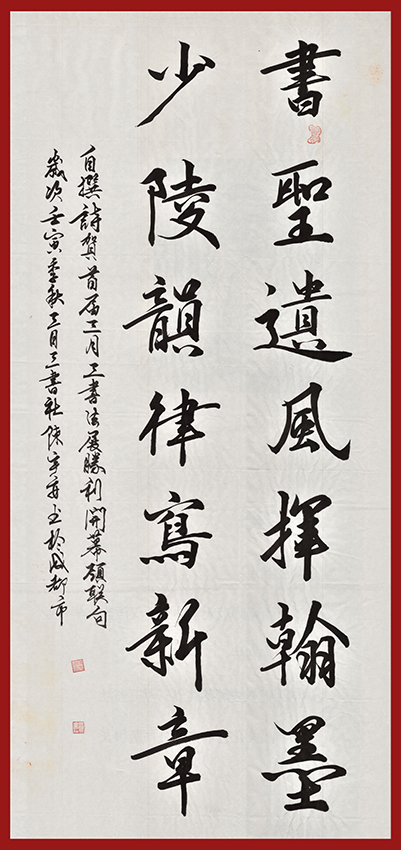 書聖遺風揮翰墨
少陵韻律寫新章
自撰詩賀首届三月三書法展勝利開幕頷联句
歲次壬寅季秋三月三書社陳宇安书於成都市